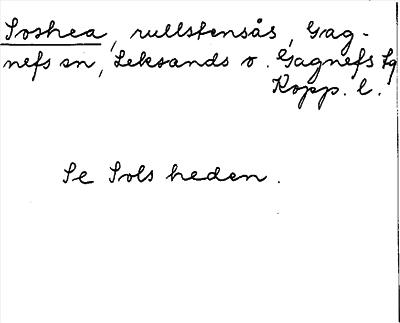 Soshea, rullstensås, Gag-
nefs sn, Leksands o. Gagnefs tg
Kopp. l.
Se Sols heden.